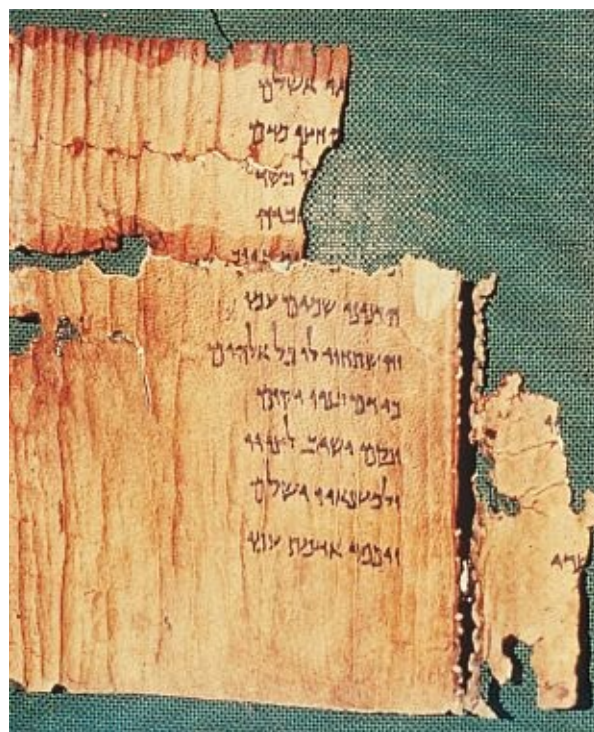 אשלם
חצי מדם
בשר
אויב
הרנינו שמים עמו
והשתחוו לו כל אלהים
כי דם בניו יקום
ונקם ישיב לצריו
ולמשנאיו ישלם
ויכפר אדמת עמו